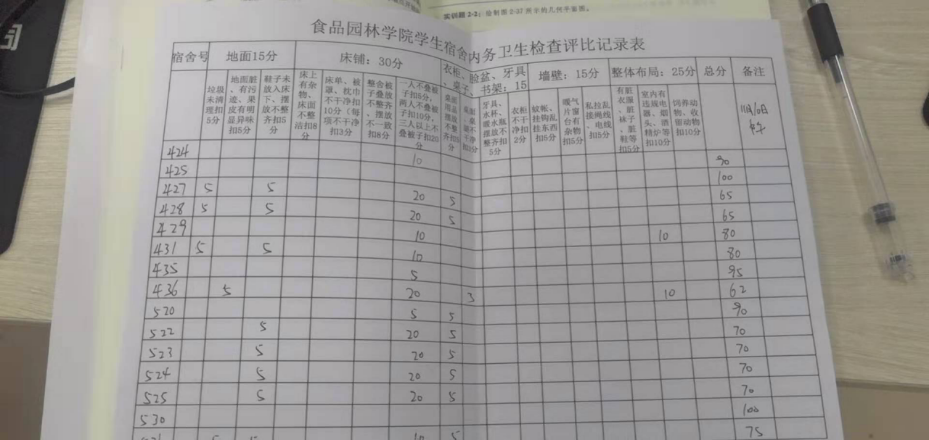 实训题2-2：绘制图2-57所示的几何平面图。
食品园林学院学生宿舍内务卫生检查评比记录表
宿舍号 地面15分 床铺：30分 衣柜、脸盆、牙具、桌子、书架：15 墙壁：15分 整体布局：25分 总分 备注
垃圾未清理扣5分 地面脏、有污迹、果皮有明显异味扣5分 鞋子未放入床下、摆放不整齐扣5分 床上有杂物、床面不整洁扣8分 床单、被罩、枕巾不干净扣10分（每项不干净扣3分 整合被子叠放不整齐、摆放不一致扣8分 一人不叠被子扣5分，两人不叠被子扣10分，三人以上不叠被子扣20分 牙具、水杯、水瓶摆放不整齐扣5分 衣柜不干净扣2分 蚊帐、挂钩乱挂东西扣5分 暖气片窗台有杂物扣5分 私拉乱接绳线、电线扣5分 有脏衣服、脏袜子、脏鞋等扣5分 室内有违规电器、烟头、酒精炉等扣10分 饲养动物、收留动物扣10分
424 10 90
425 100
427 5 5 20 5 65
428 5 5 20 5 65
429 10 10 80
431 5 5 10 80
435 5 95
436 5 20 3 10 62
520 5 5 90
522 5 20 5 70
523 5 20 5 70
524 5 20 5 70
525 5 20 5 70
530 100
5 5 10 5 75